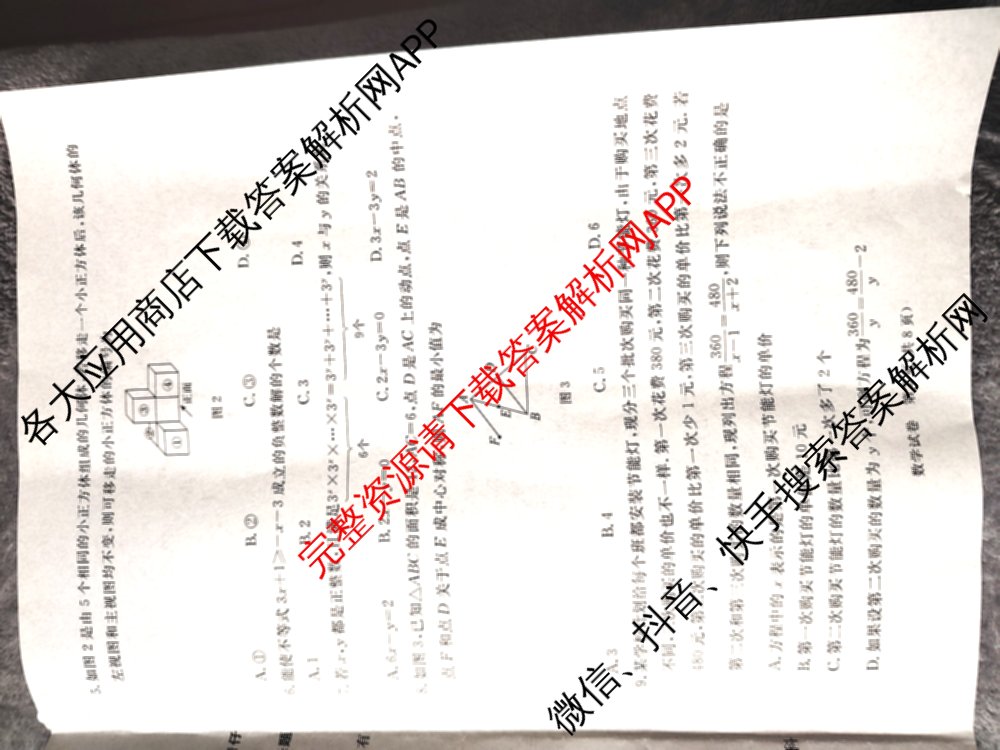 5. 如图 2 是由 5 个相同的小正方体组成的几何体,移走一个小正方体后,该几何体的
左视图和主视图均不变,则可移走的小正方体的
A. ① B. ② C. ③ D.
① ② ③ ④ 正面
图 2
6. 能使不等式 3x+1>-x-3 成立的负整数解的个数是
A. 1 B. 2 C. 3 D. 4
7. 若 x,y 都是正整数, 3ˣ×3ˣ×…×3ˣ=3ʸ+3ʸ+…+3ʸ,则 x 与 y 的关
6个 9个
A. 6x-y=2 B. C. 2x-3y=0 D. 3x-3y=2
8. 如图 3,已知△ABC 的面积是 =6,点 D 是 AC 上的动点,点 E 是 AB 的中点,
点 F 和点 D 关于点 E 成中心对称, F 的最小值为
F E B
图 3
A. 3 B. 4 C. 5 D. 6
9. 某学校 给每个班都安装节能灯,现分三个批次购买同一种 能灯,由于购买地点
不同, 的单价也不一样.第一次花费 380 元,第二次花费 元,第三次花费
480 元,第 购买的单价比第一次少 1 元,第三次购买的单价比第 多 2 元.若
第二次和第三次 的数量相同,现列出方程 360/(x-1)=480/(x+2),则下列说法不正确的是
A. 方程中的 x 表示的是 次购买节能灯的单价
B. 第一次购买节能灯的单 0 元
C. 第二次购买节能灯的数量比 次多了 2 个
D. 如果设第二次购买的数量为 y 方程为 360/y=480/y-2
数学试卷 8 页)
各大应用商店下载答案解析网APP
完整资源请下载答案解析网APP
微信、抖音、快手搜索答案解析网